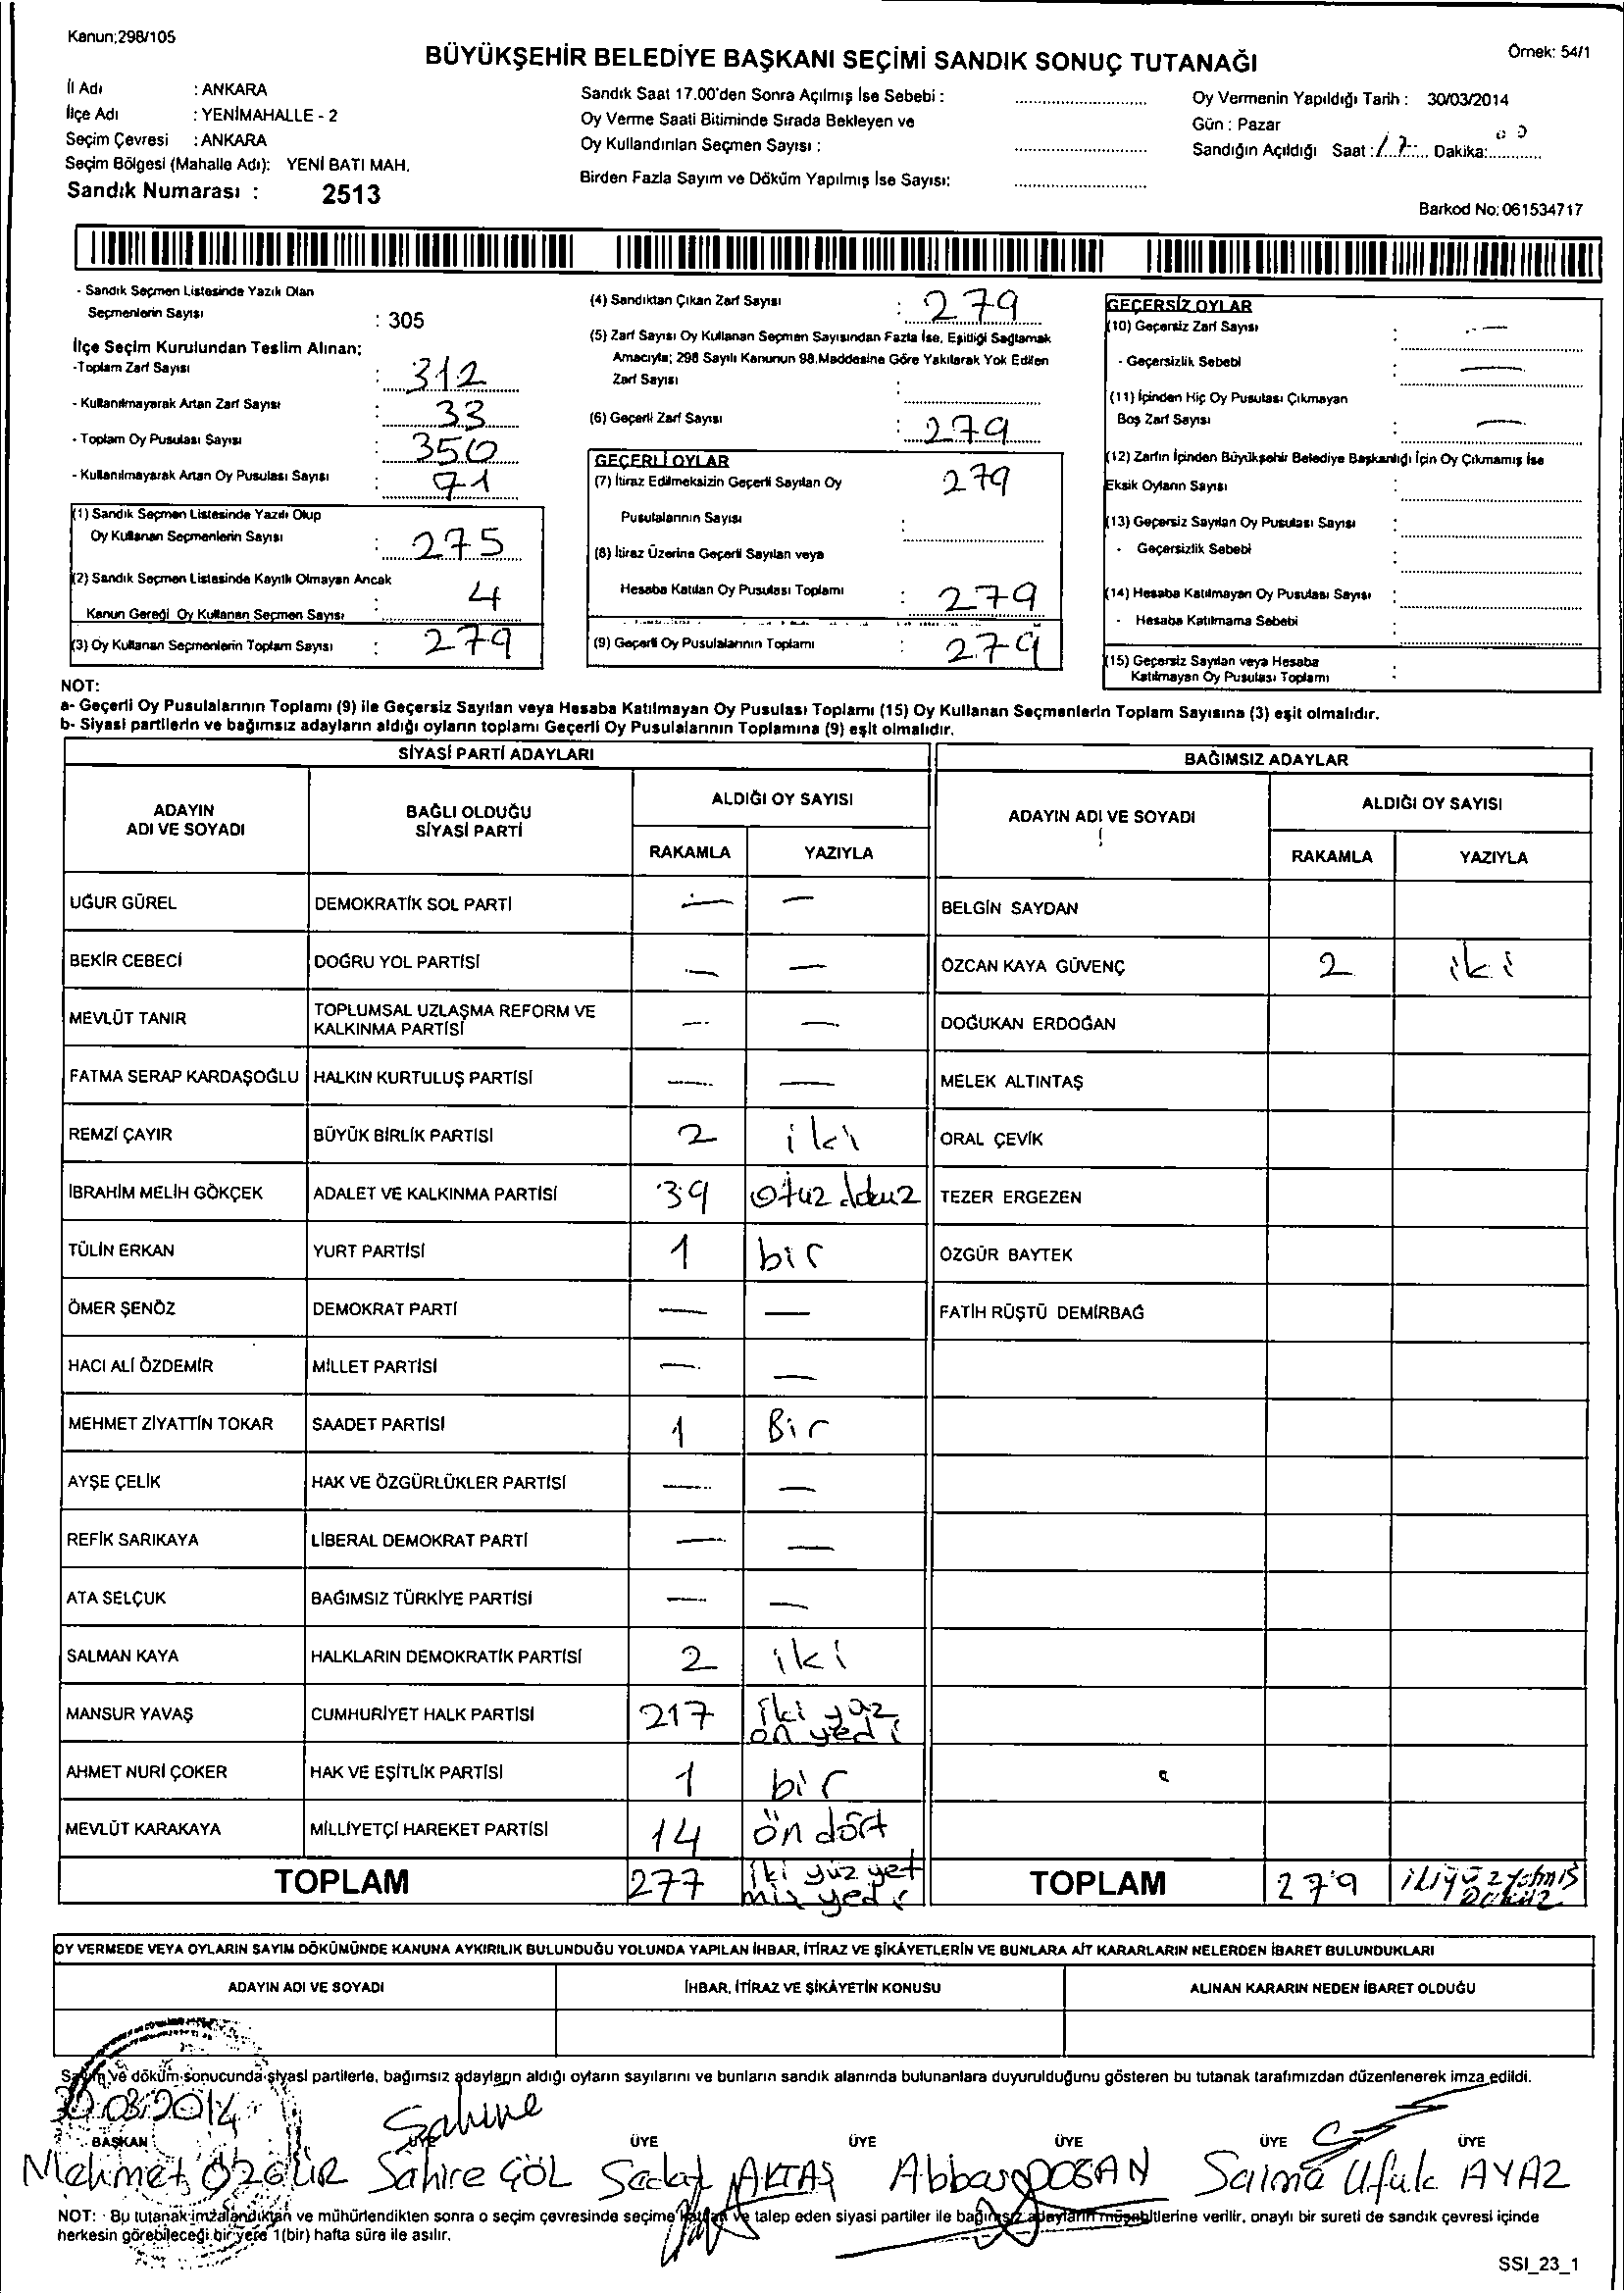 Kanun;298/105
Örnek: 54/1
BÜYÜKŞEHİR BELEDİYE BAŞKANI SEÇİMİ SANDIK SONUÇ TUTANAĞI
İl Adı : ANKARA
İlçe Adı : YENİMAHALLE - 2
Seçim Çevresi : ANKARA
Seçim Bölgesi (Mahalle Adı): YENİ BATI MAH.
Sandık Numarası : 2513
Sandık Saat 17.00'den Sonra Açılmış İse Sebebi :
Oy Verme Saati Bitiminde Sırada Bekleyen ve
Oy Kullandırılan Seçmen Sayısı :
Birden Fazla Sayım ve Döküm Yapılmış İse Sayısı:
Oy Vermenin Yapıldığı Tarih : 30/03/2014
Gün : Pazar
Sandığın Açıldığı Saat : 17 Dakika: 00
Barkod No: 061534717
- Sandık Seçmen Listesinde Yazılı Olan
Seçmenlerin Sayısı : 305
İlçe Seçim Kurulundan Teslim Alınan;
-Toplam Zarf Sayısı : 312
- Kullanılmayarak Artan Zarf Sayısı : 33
- Toplam Oy Pusulası Sayısı : 350
- Kullanılmayarak Artan Oy Pusulası Sayısı : 71
(1) Sandık Seçmen Listesinde Yazılı Olup
Oy Kullanan Seçmenlerin Sayısı : 275
(2) Sandık Seçmen Listesinde Kayıtlı Olmayan Ancak
Kanun Gereği Oy Kullanan Seçmen Sayısı : 4
(3) Oy Kullanan Seçmenlerin Toplam Sayısı : 279
(4) Sandıktan Çıkan Zarf Sayısı : 279
(5) Zarf Sayısı Oy Kullanan Seçmen Sayısından Fazla İse, Eşitliği Sağlamak
Amacıyla; 298 Sayılı Kanunun 98.Maddesine Göre Yakılarak Yok Edilen
Zarf Sayısı :
(6) Geçerli Zarf Sayısı : 279
GEÇERLİ OYLAR
(7) İtiraz Edilmeksizin Geçerli Sayılan Oy 279
Pusulalarının Sayısı :
(8) İtiraz Üzerine Geçerli Sayılan veya
Hesaba Katılan Oy Pusulası Toplamı : 279
(9) Geçerli Oy Pusulalarının Toplamı : 279
GEÇERSİZ OYLAR
(10) Geçersiz Zarf Sayısı : —
- Geçersizlik Sebebi : —
(11) İçinden Hiç Oy Pusulası Çıkmayan
Boş Zarf Sayısı : —
(12) Zarfın İçinden Büyükşehir Belediye Başkanlığı İçin Oy Çıkmamış İse
Eksik Oyların Sayısı :
(13) Geçersiz Sayılan Oy Pusulası Sayısı :
- Geçersizlik Sebebi :
(14) Hesaba Katılmayan Oy Pusulası Sayısı :
- Hesaba Katılmama Sebebi :
(15) Geçersiz Sayılan veya Hesaba
Katılmayan Oy Pusulası Toplamı :
NOT:
a- Geçerli Oy Pusulalarının Toplamı (9) ile Geçersiz Sayılan veya Hesaba Katılmayan Oy Pusulası Toplamı (15) Oy Kullanan Seçmenlerin Toplam Sayısına (3) eşit olmalıdır.
b- Siyasi partilerin ve bağımsız adayların aldığı oyların toplamı Geçerli Oy Pusulalarının Toplamına (9) eşit olmalıdır.
SİYASİ PARTİ ADAYLARI
BAĞIMSIZ ADAYLAR
ADAYIN ADI VE SOYADI
BAĞLI OLDUĞU SİYASİ PARTİ
ALDIĞI OY SAYISI
RAKAMLA YAZIYLA
ADAYIN ADI VE SOYADI
ALDIĞI OY SAYISI
RAKAMLA YAZIYLA
UĞUR GÜREL DEMOKRATİK SOL PARTİ — — BELGİN SAYDAN
BEKİR CEBECİ DOĞRU YOL PARTİSİ — — ÖZCAN KAYA GÜVENÇ 2 iki
MEVLÜT TANIR TOPLUMSAL UZLAŞMA REFORM VE KALKINMA PARTİSİ — — DOĞUKAN ERDOĞAN
FATMA SERAP KARDAŞOĞLU HALKIN KURTULUŞ PARTİSİ — — MELEK ALTINTAŞ
REMZİ ÇAYIR BÜYÜK BİRLİK PARTİSİ 2 iki ORAL ÇEVİK
İBRAHİM MELİH GÖKÇEK ADALET VE KALKINMA PARTİSİ 39 otuz dokuz TEZER ERGEZEN
TÜLİN ERKAN YURT PARTİSİ 1 bir ÖZGÜR BAYTEK
ÖMER ŞENÖZ DEMOKRAT PARTİ — — FATİH RÜŞTÜ DEMİRBAĞ
HACI ALİ ÖZDEMİR MİLLET PARTİSİ — —
MEHMET ZİYATTİN TOKAR SAADET PARTİSİ 1 Bir
AYŞE ÇELİK HAK VE ÖZGÜRLÜKLER PARTİSİ — —
REFİK SARIKAYA LİBERAL DEMOKRAT PARTİ — —
ATA SELÇUK BAĞIMSIZ TÜRKİYE PARTİSİ — —
SALMAN KAYA HALKLARIN DEMOKRATİK PARTİSİ 2 iki
MANSUR YAVAŞ CUMHURİYET HALK PARTİSİ 217 iki yüz on yedi
AHMET NURİ ÇOKER HAK VE EŞİTLİK PARTİSİ 1 bir
MEVLÜT KARAKAYA MİLLİYETÇİ HAREKET PARTİSİ 14 ön dört
TOPLAM 277 iki yüz yetmiş yedi TOPLAM 279
OY VERMEDE VEYA OYLARIN SAYIM DÖKÜMÜNDE KANUNA AYKIRILIK BULUNDUĞU YOLUNDA YAPILAN İHBAR, İTİRAZ VE ŞİKÂYETLERİN VE BUNLARA AİT KARARLARIN NELERDEN İBARET BULUNDUKLARI
ADAYIN ADI VE SOYADI
İHBAR, İTİRAZ VE ŞİKÂYETİN KONUSU
ALINAN KARARIN NEDEN İBARET OLDUĞU
Sayım ve döküm sonucunda siyasi partilerle, bağımsız adayların aldığı oyların sayılarını ve bunların sandık alanında bulunanlara duyurulduğunu gösteren bu tutanak tarafımızdan düzenlenerek imza edildi.
30.03.2014
Sahire
BAŞKAN ÜYE ÜYE ÜYE ÜYE ÜYE ÜYE
Mehmet ÖZGÜR Sahire GÖL Sedat AKTAŞ Abbas DOĞAN Saime Ufuk AYAZ
NOT: Bu tutanak imzalandıktan ve mühürlendikten sonra o seçim çevresinde seçime katılan ve talep eden siyasi partiler ile bağımsız adayların müşahitlerine verilir, onaylı bir sureti de sandık çevresi içinde
herkesin görebileceği bir yere 1(bir) hafta süre ile asılır.
SSI_23_1